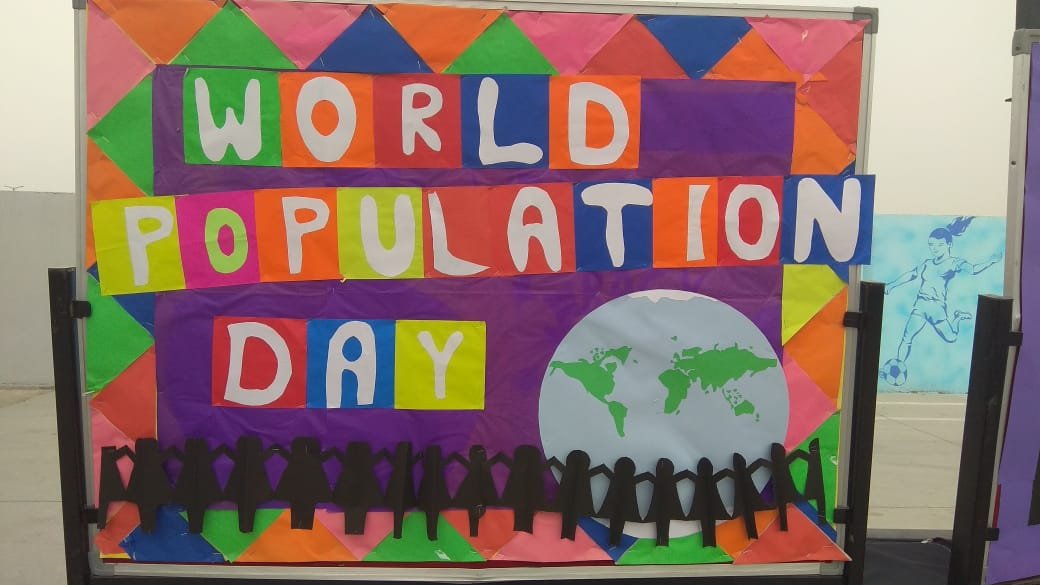 WORLD
POPULATION
DAY